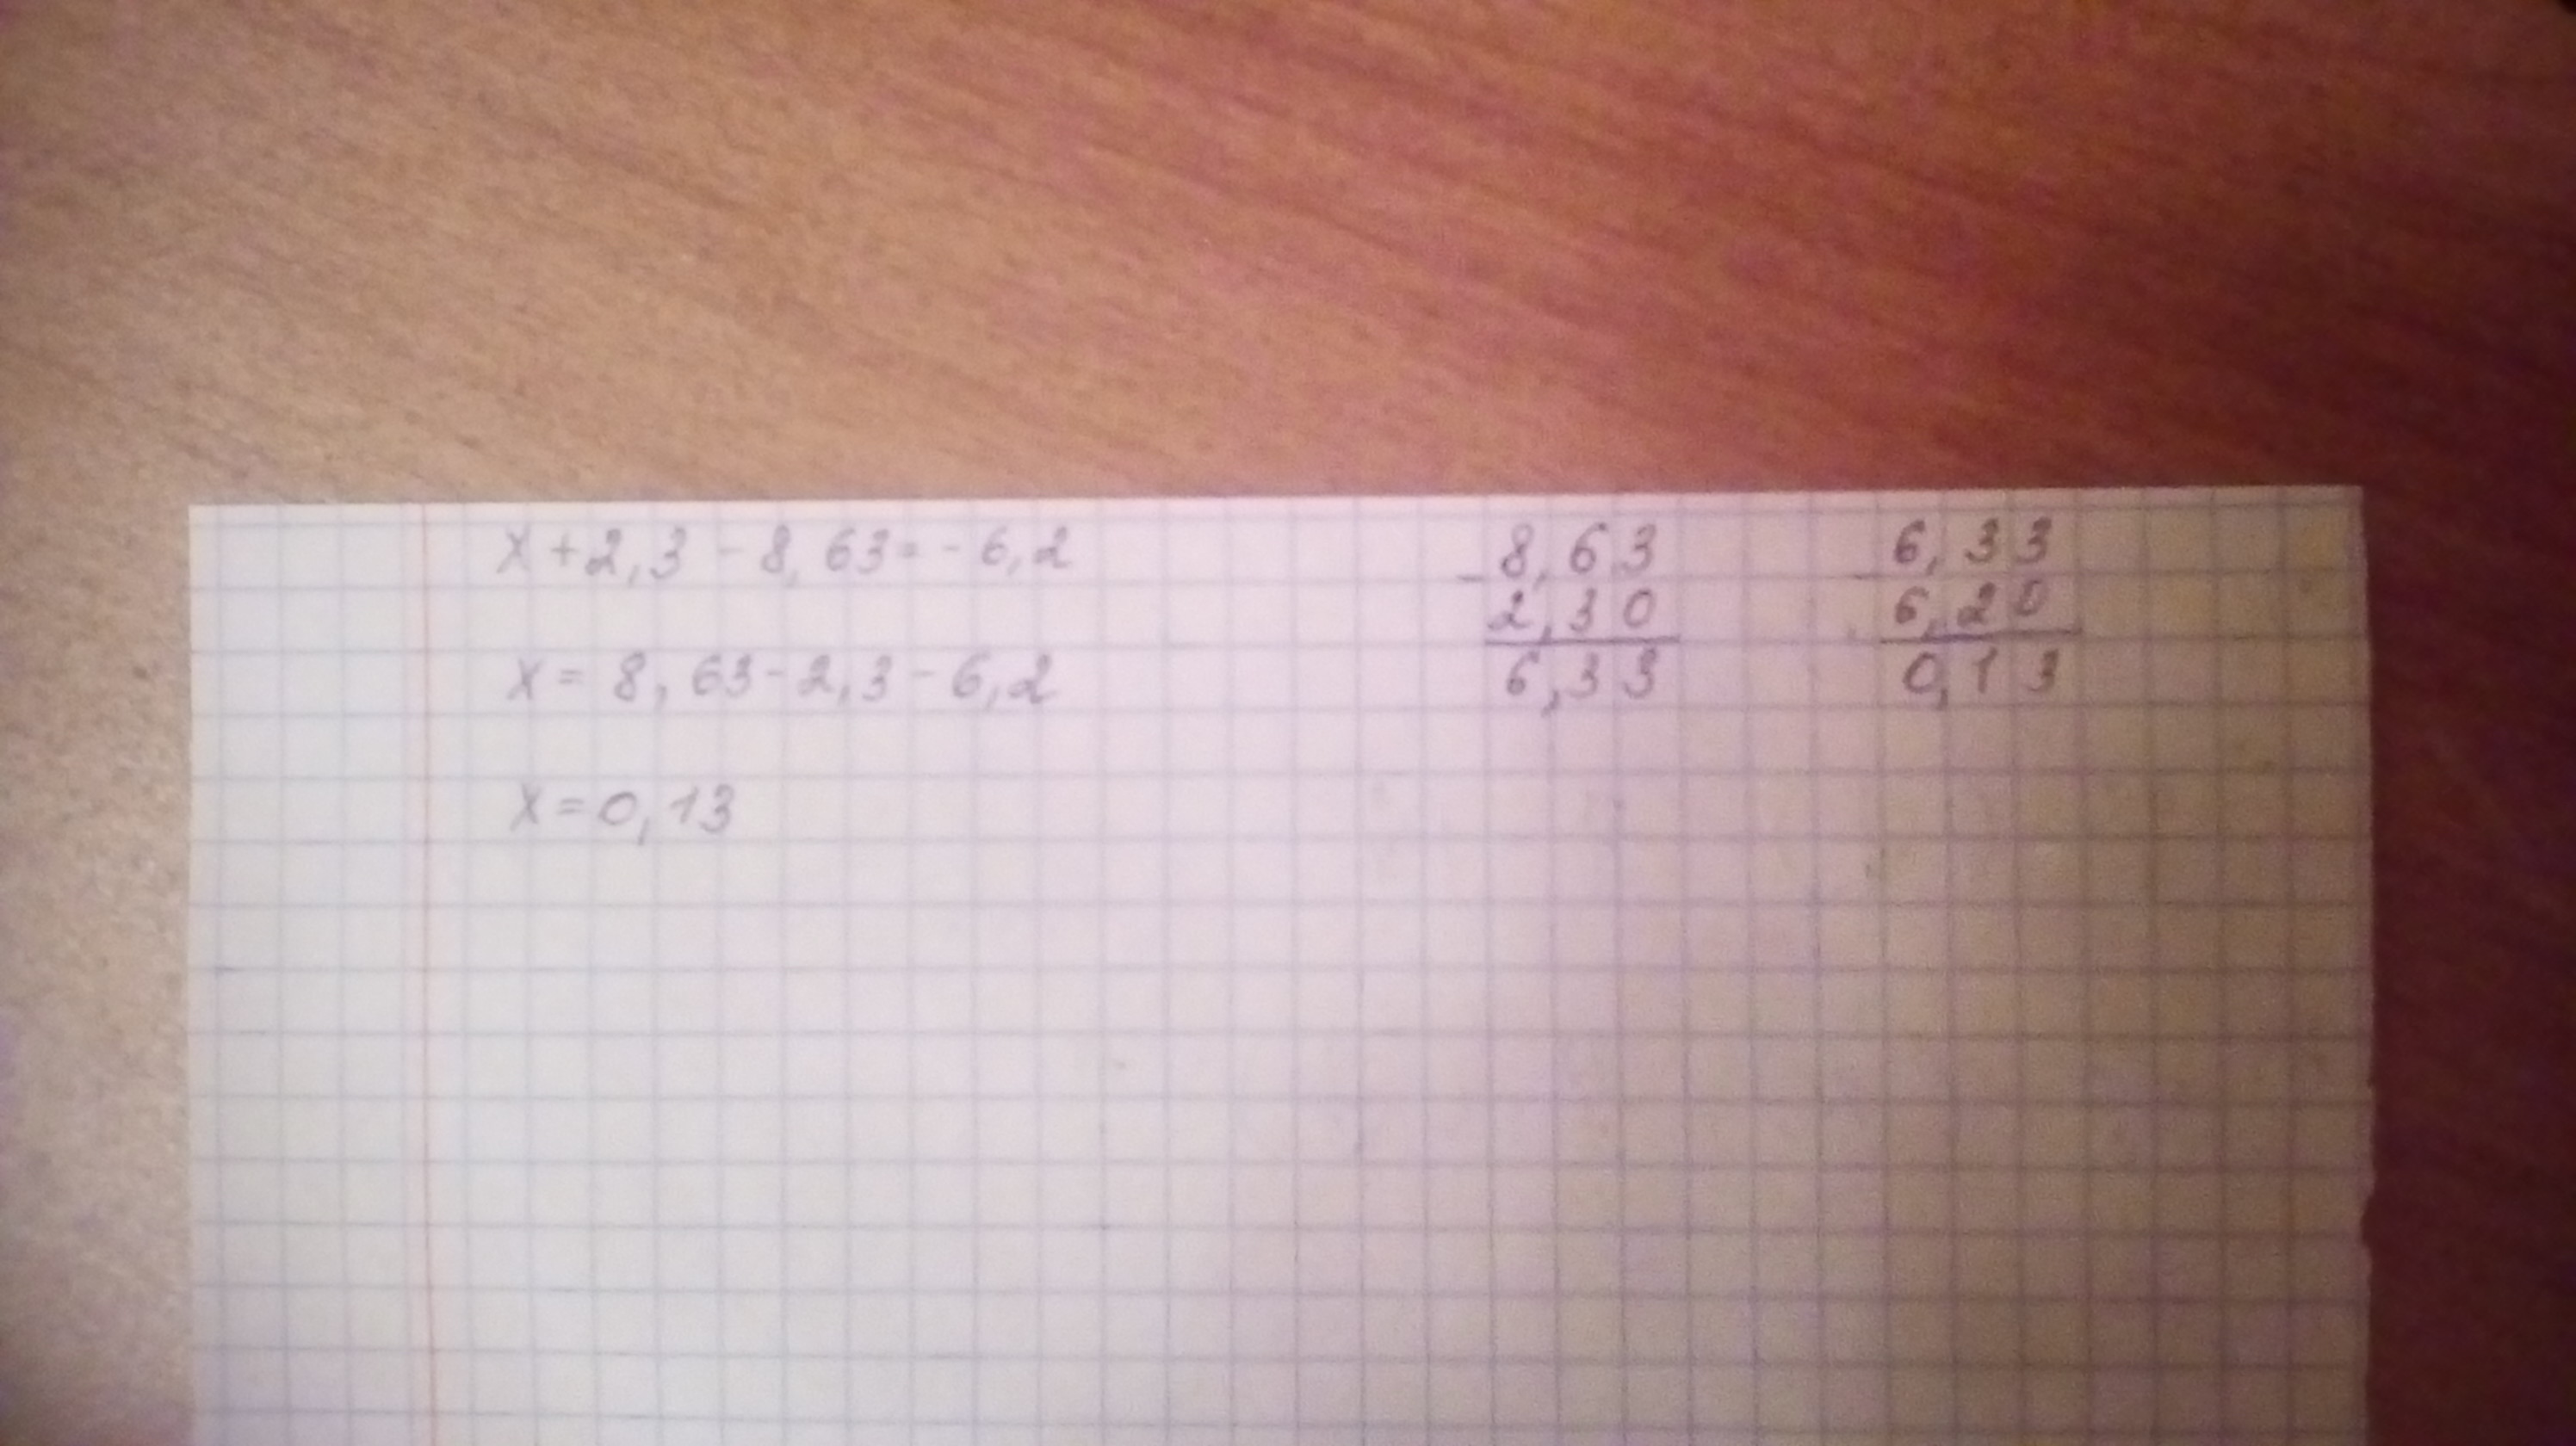 x + 2,3 - 8,63 = - 6,2
x = 8,63 - 2,3 - 6,2
x = 0,13
- 8,63
2,30
6,33
- 6,33
6,20
0,13